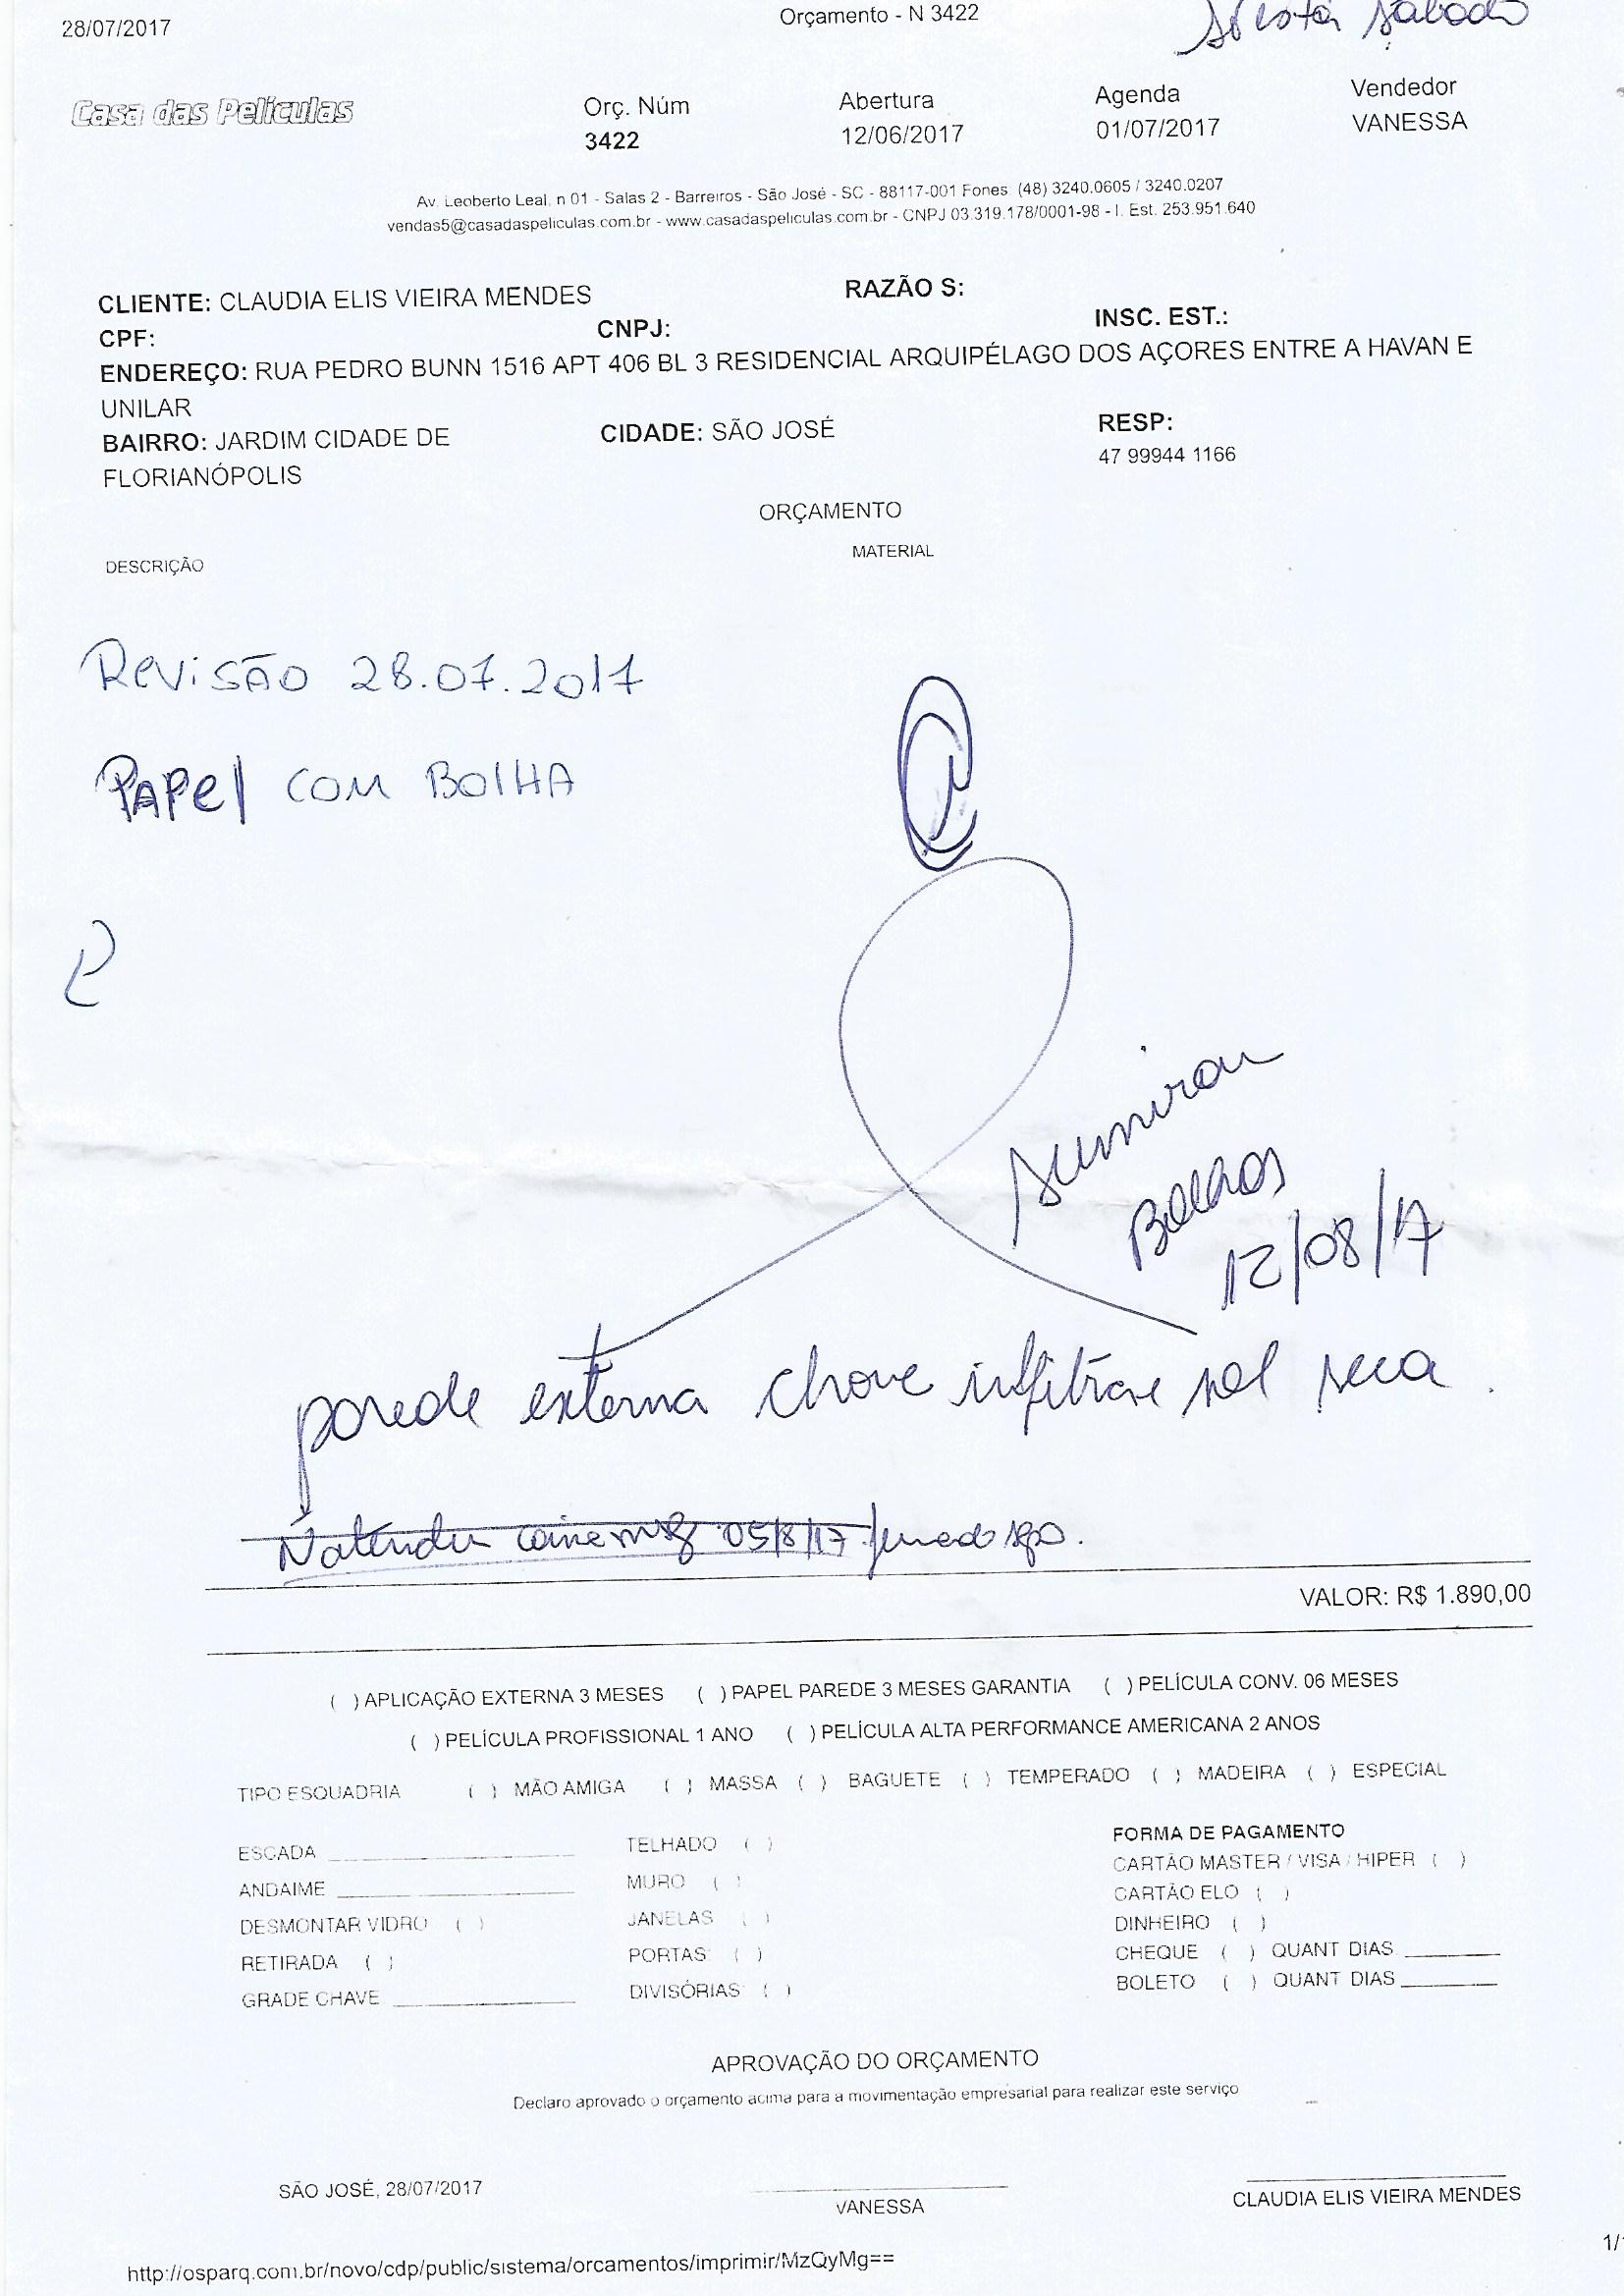 28/07/2017 Orçamento - N 3422 sábado
Casa das Películas
Orç. Núm Abertura Agenda Vendedor
3422 12/06/2017 01/07/2017 VANESSA
Av. Leoberto Leal, n 01 - Salas 2 - Barreiros - São José - SC - 88117-001 Fones: (48) 3240.0605 / 3240.0207
vendas5@casadaspeliculas.com.br - www.casadaspeliculas.com.br - CNPJ 03.319.178/0001-98 - I. Est. 253.951.640
CLIENTE: CLAUDIA ELIS VIEIRA MENDES RAZÃO S:
CPF: CNPJ: INSC. EST.:
ENDEREÇO: RUA PEDRO BUNN 1516 APT 406 BL 3 RESIDENCIAL ARQUIPÉLAGO DOS AÇORES ENTRE A HAVAN E
UNILAR
BAIRRO: JARDIM CIDADE DE CIDADE: SÃO JOSÉ RESP:
FLORIANÓPOLIS 47 99944 1166
ORÇAMENTO
DESCRIÇÃO MATERIAL
Revisão 28.07.2017
PAPel COM BOlHA
sumiram
Bolhas
12/08/17
parede externa chove infiltra sol seca.
05/8/17
VALOR: R$ 1.890,00
( ) APLICAÇÃO EXTERNA 3 MESES ( ) PAPEL PAREDE 3 MESES GARANTIA ( ) PELÍCULA CONV. 06 MESES
( ) PELÍCULA PROFISSIONAL 1 ANO ( ) PELÍCULA ALTA PERFORMANCE AMERICANA 2 ANOS
TIPO ESQUADRIA ( ) MÃO AMIGA ( ) MASSA ( ) BAGUETE ( ) TEMPERADO ( ) MADEIRA ( ) ESPECIAL
ESCADA
ANDAIME
DESMONTAR VIDRO ( )
RETIRADA ( )
GRADE CHAVE
TELHADO ( )
MURO ( )
JANELAS ( )
PORTAS ( )
DIVISÓRIAS ( )
FORMA DE PAGAMENTO
CARTÃO MASTER / VISA / HIPER ( )
CARTÃO ELO ( )
DINHEIRO ( )
CHEQUE ( ) QUANT DIAS
BOLETO ( ) QUANT DIAS
APROVAÇÃO DO ORÇAMENTO
Declaro aprovado o orçamento acima para a movimentação empresarial para realizar este serviço
SÃO JOSÉ, 28/07/2017
VANESSA
CLAUDIA ELIS VIEIRA MENDES
http://osparq.com.br/novo/cdp/public/sistema/orcamentos/imprimir/MzQyMg==